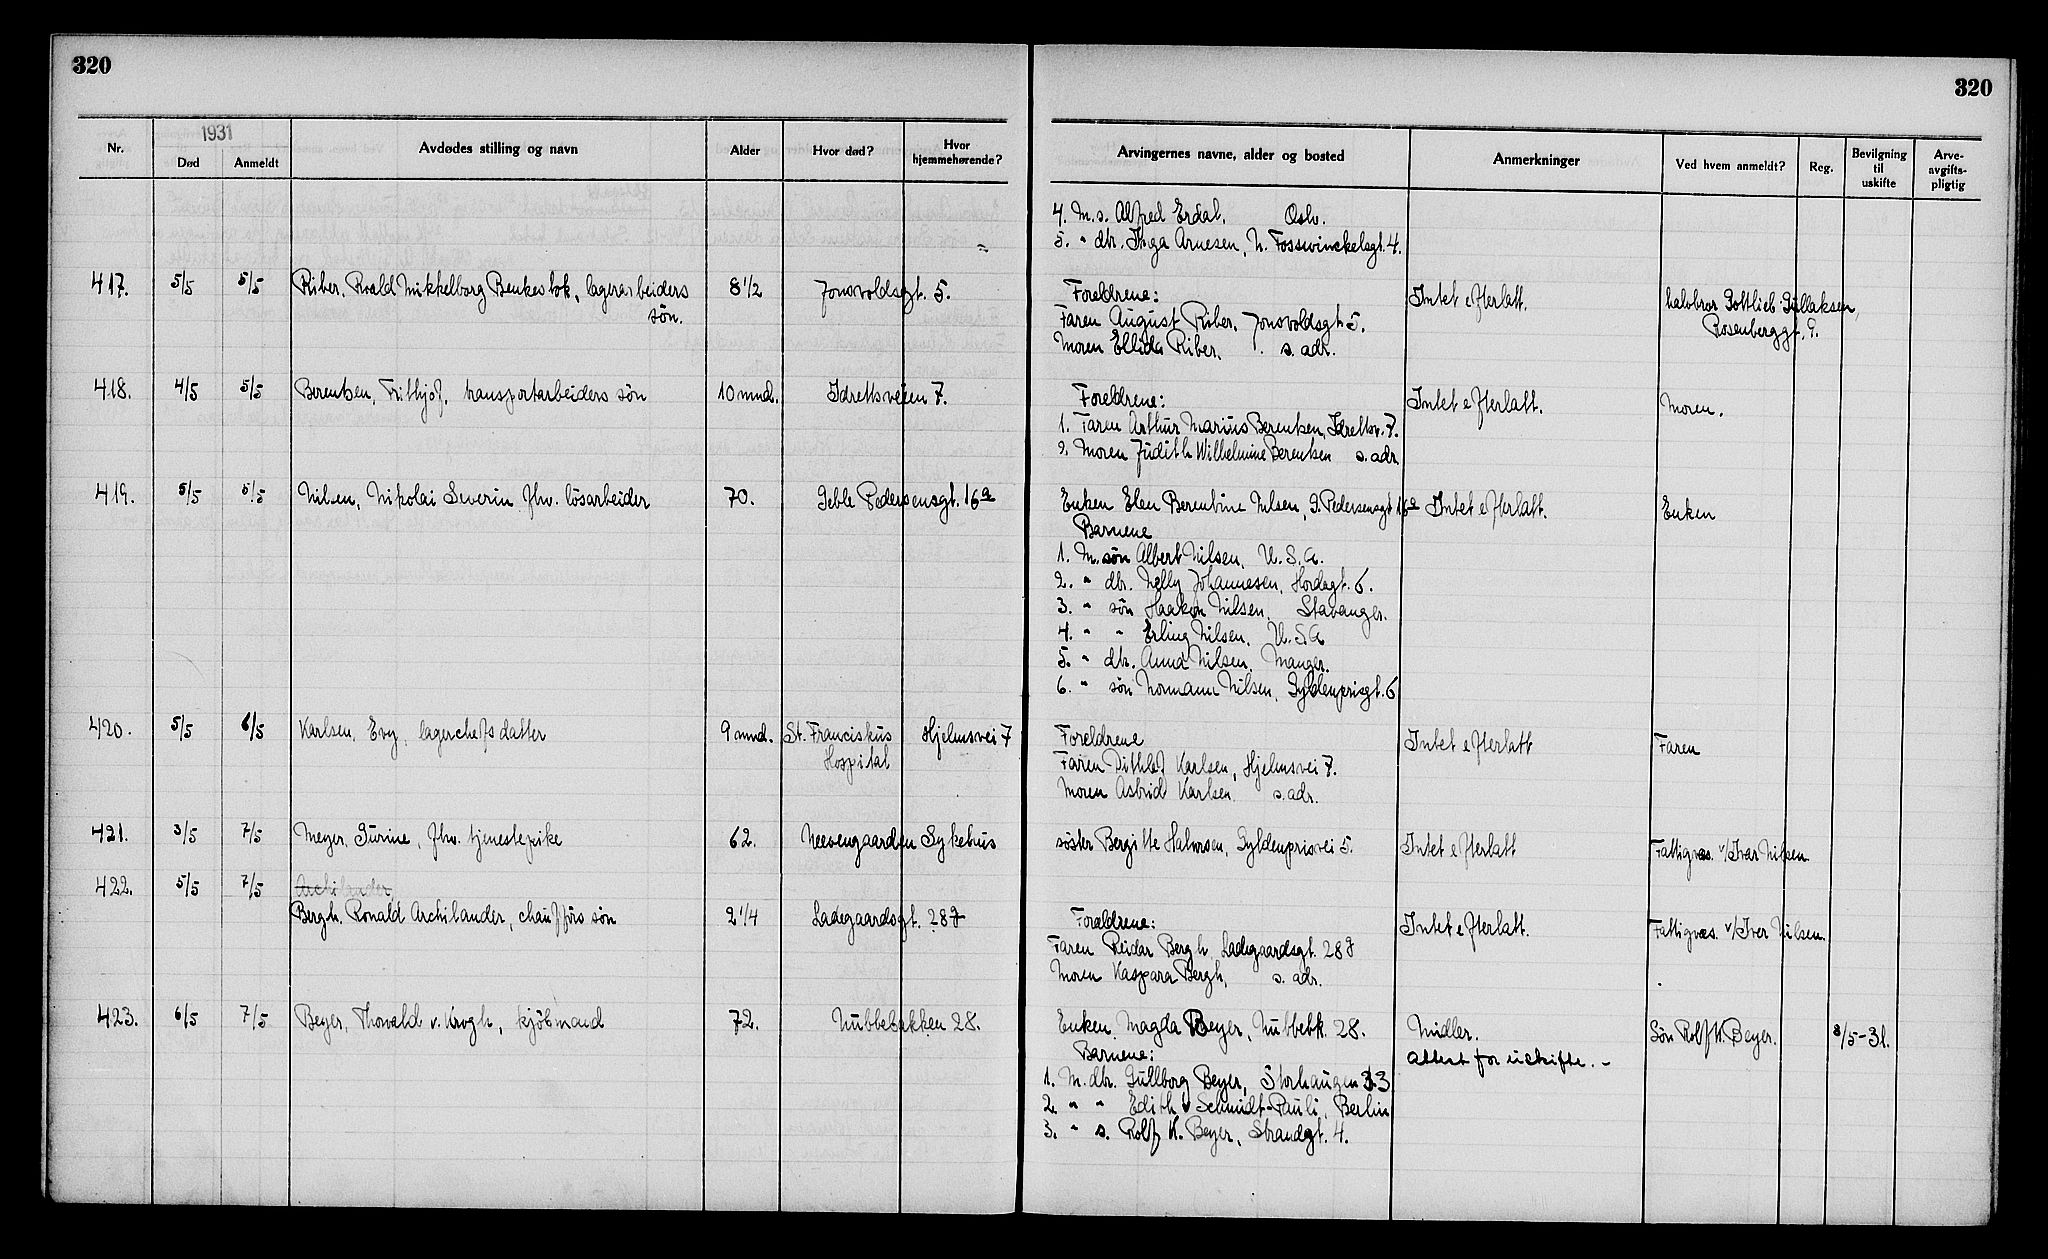 320
320
1931
Nr. Død Anmeldt Avdødes stilling og navn Alder Hvor død? Hvor hjemmehørende?
Arvingernes navne, alder og bosted Anmerkninger Ved hvem anmeldt? Reg. Bevilgning til uskifte Arve-avgifts-pligtig
4. M. s. Alfred Erdal, Oslo.
5. " dtr. Inga Arnesen, N. Fosswinckelsgt. 4.
417. 5/5 5/5 Riber, Roald Mikkelborg Benkestok, lagerarbeiders 8 1/2 Jonsvoldsgt. 5.
søn.
Foreldrene: Intet efterlatt. halvbror Gottlieb Gullaksen,
Faren August Riber, Jonsvoldsgt. 5. Rosenberggt. 9.
Moren Ellida Riber, s. adr.
418. 4/5 5/5 Berentsen, Frithjof, transportarbeiders søn 10 mnd. Idrettsveien 7.
Foreldrene: Intet efterlatt. Moren.
1. Faren Arthur Marius Berentsen, Idrettsv. 7.
2. Moren Judith Wilhelmine Berentsen s. adr.
419. 5/5 5/5 Nilsen, Nikolai Severin fhv. løsarbeider 70. Geble Pedersensgt. 16a
Enken Elen Berentine Nilsen, G. Pedersensgt 16a Intet efterlatt. Enken
Barnene
1. M. søn Albert Nilsen, U.S.A.
2. " dtr. Nelly Johannesen, Hordagt. 6.
3. " søn Haakon Nilsen, Stavanger.
4. " " Erling Nilsen, U.S.A
5. " dtr. Anna Nilsen, Manger.
6. " søn Normann Nilsen, Gyldenprisgt. 6
420. 5/5 6/5 Karlsen, Evy, lagerchefs datter 9 mnd. St. Franciskus Hjelmsvei 7
Hospital
Foreldrene Intet efterlatt Faren
Faren Ditlef Karlsen, Hjelmsvei 7.
Moren Astrid Karlsen s. adr.
421. 3/5 7/5 Meyer, Gurine, fhv. tjenestepike 62. Neevengaarden Sykehus
søster Bergitte Halvorsen, Gyldenprisvei 5. Intet efterlatt Fattigvæs. v/Ivar Nilsen
422. 5/5 7/5 Archilander
Bergh, Ronald Archilander, chaufførs søn 2 1/4 Ladegaardsgt. 28g
Foreldrene: Intet efterlatt. Fattigvæs. v/Iver Nilsen.
Faren Reidar Bergh, Ladegaardsgt. 28g
Moren Kaspara Bergh, s. adr.
423. 6/5 7/5 Beyer, Thorvald v. Krogh, kjøbmand 72. Nubbebakken 28.
Enken Magda Beyer, Nubbebk. 28. Midler. Søn Rolf K. Beyer. 8/5-31.
Barnene: Attest for uskifte. -
1. M. dtr. Gullborg Beyer, Storhaugen 33
2. " " Edith v Schmidt-Pauli, Berlin
3. " s. Rolf K. Beyer, Strandgt. 4.